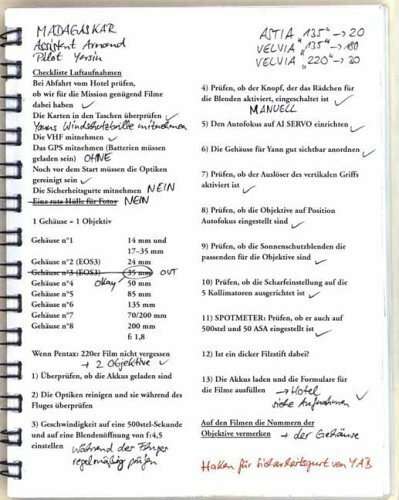 MADAGASKAR
Assistent Armand
Pilot Yersin
Checkliste Luftaufnahmen
Bei Abfahrt vom Hotel prüfen,
ob wir für die Mission genügend Filme
dabei haben ✓
Die Karten in den Taschen überprüfen ✓
Yanns Windschutzbrille mitnehmen
Die VHF mitnehmen ✓
Das GPS mitnehmen (Batterien müssen
geladen sein) OHNE
Noch vor dem Start müssen die Optiken
gereinigt sein ✓
Die Sicherheitsgurte mitnehmen NEIN
Eine rote Hülle für Fotos NEIN
1 Gehäuse = 1 Objektiv
Gehäuse n°1 14 mm und
17–35 mm
Gehäuse n°2 (EOS3) 24 mm
Gehäuse n°3 (EOS3) 35 mm OUT
Gehäuse n°4 okay 50 mm
Gehäuse n°5 85 mm
Gehäuse n°6 135 mm
Gehäuse n°7 70/200 mm
Gehäuse n°8 200 mm
f 1,8
Wenn Pentax: 220er Film nicht vergessen
+ 2 Objektive ✓
1) Überprüfen, ob die Akkus geladen sind
2) Die Optiken reinigen und sie während des
Fluges überprüfen
3) Geschwindigkeit auf eine 500stel-Sekunde
und auf eine Blendenöffnung von f:4,5
einstellen
Während der Flüge
regelmäßig prüfen
ASTIA "135" → 20
VELVIA "135" → 180
VELVIA "220" → 20
4) Prüfen, ob der Knopf, der das Rädchen für
die Blenden aktiviert, eingeschaltet ist ✓
MANUELL
5) Den Autofokus auf AI SERVO einrichten ✓
6) Die Gehäuse für Yann gut sichtbar anordnen
✓
7) Prüfen, ob der Auslöser des vertikalen Griffs
aktiviert ist ✓
8) Prüfen, ob die Objektive auf Position
Autofokus eingestellt sind ✓
9) Prüfen, ob die Sonnenschutzblenden die
passenden für die Objektive sind ✓
10) Prüfen, ob die Scharfeinstellung auf die
5 Kollimatoren ausgerichtet ist ✓
11) SPOTMETER: Prüfen, ob er auch auf
500stel und 50 ASA eingestellt ist ✓
12) Ist ein dicker Filzstift dabei?
13) Die Akkus laden und die Formulare für
die Filme ausfüllen → Hotel
siehe Aufnahmen ✓
Auf den Filmen die Nummern der
Objektive vermerken + der Gehäuse
Haken für Sicherheitsgurt von YAB